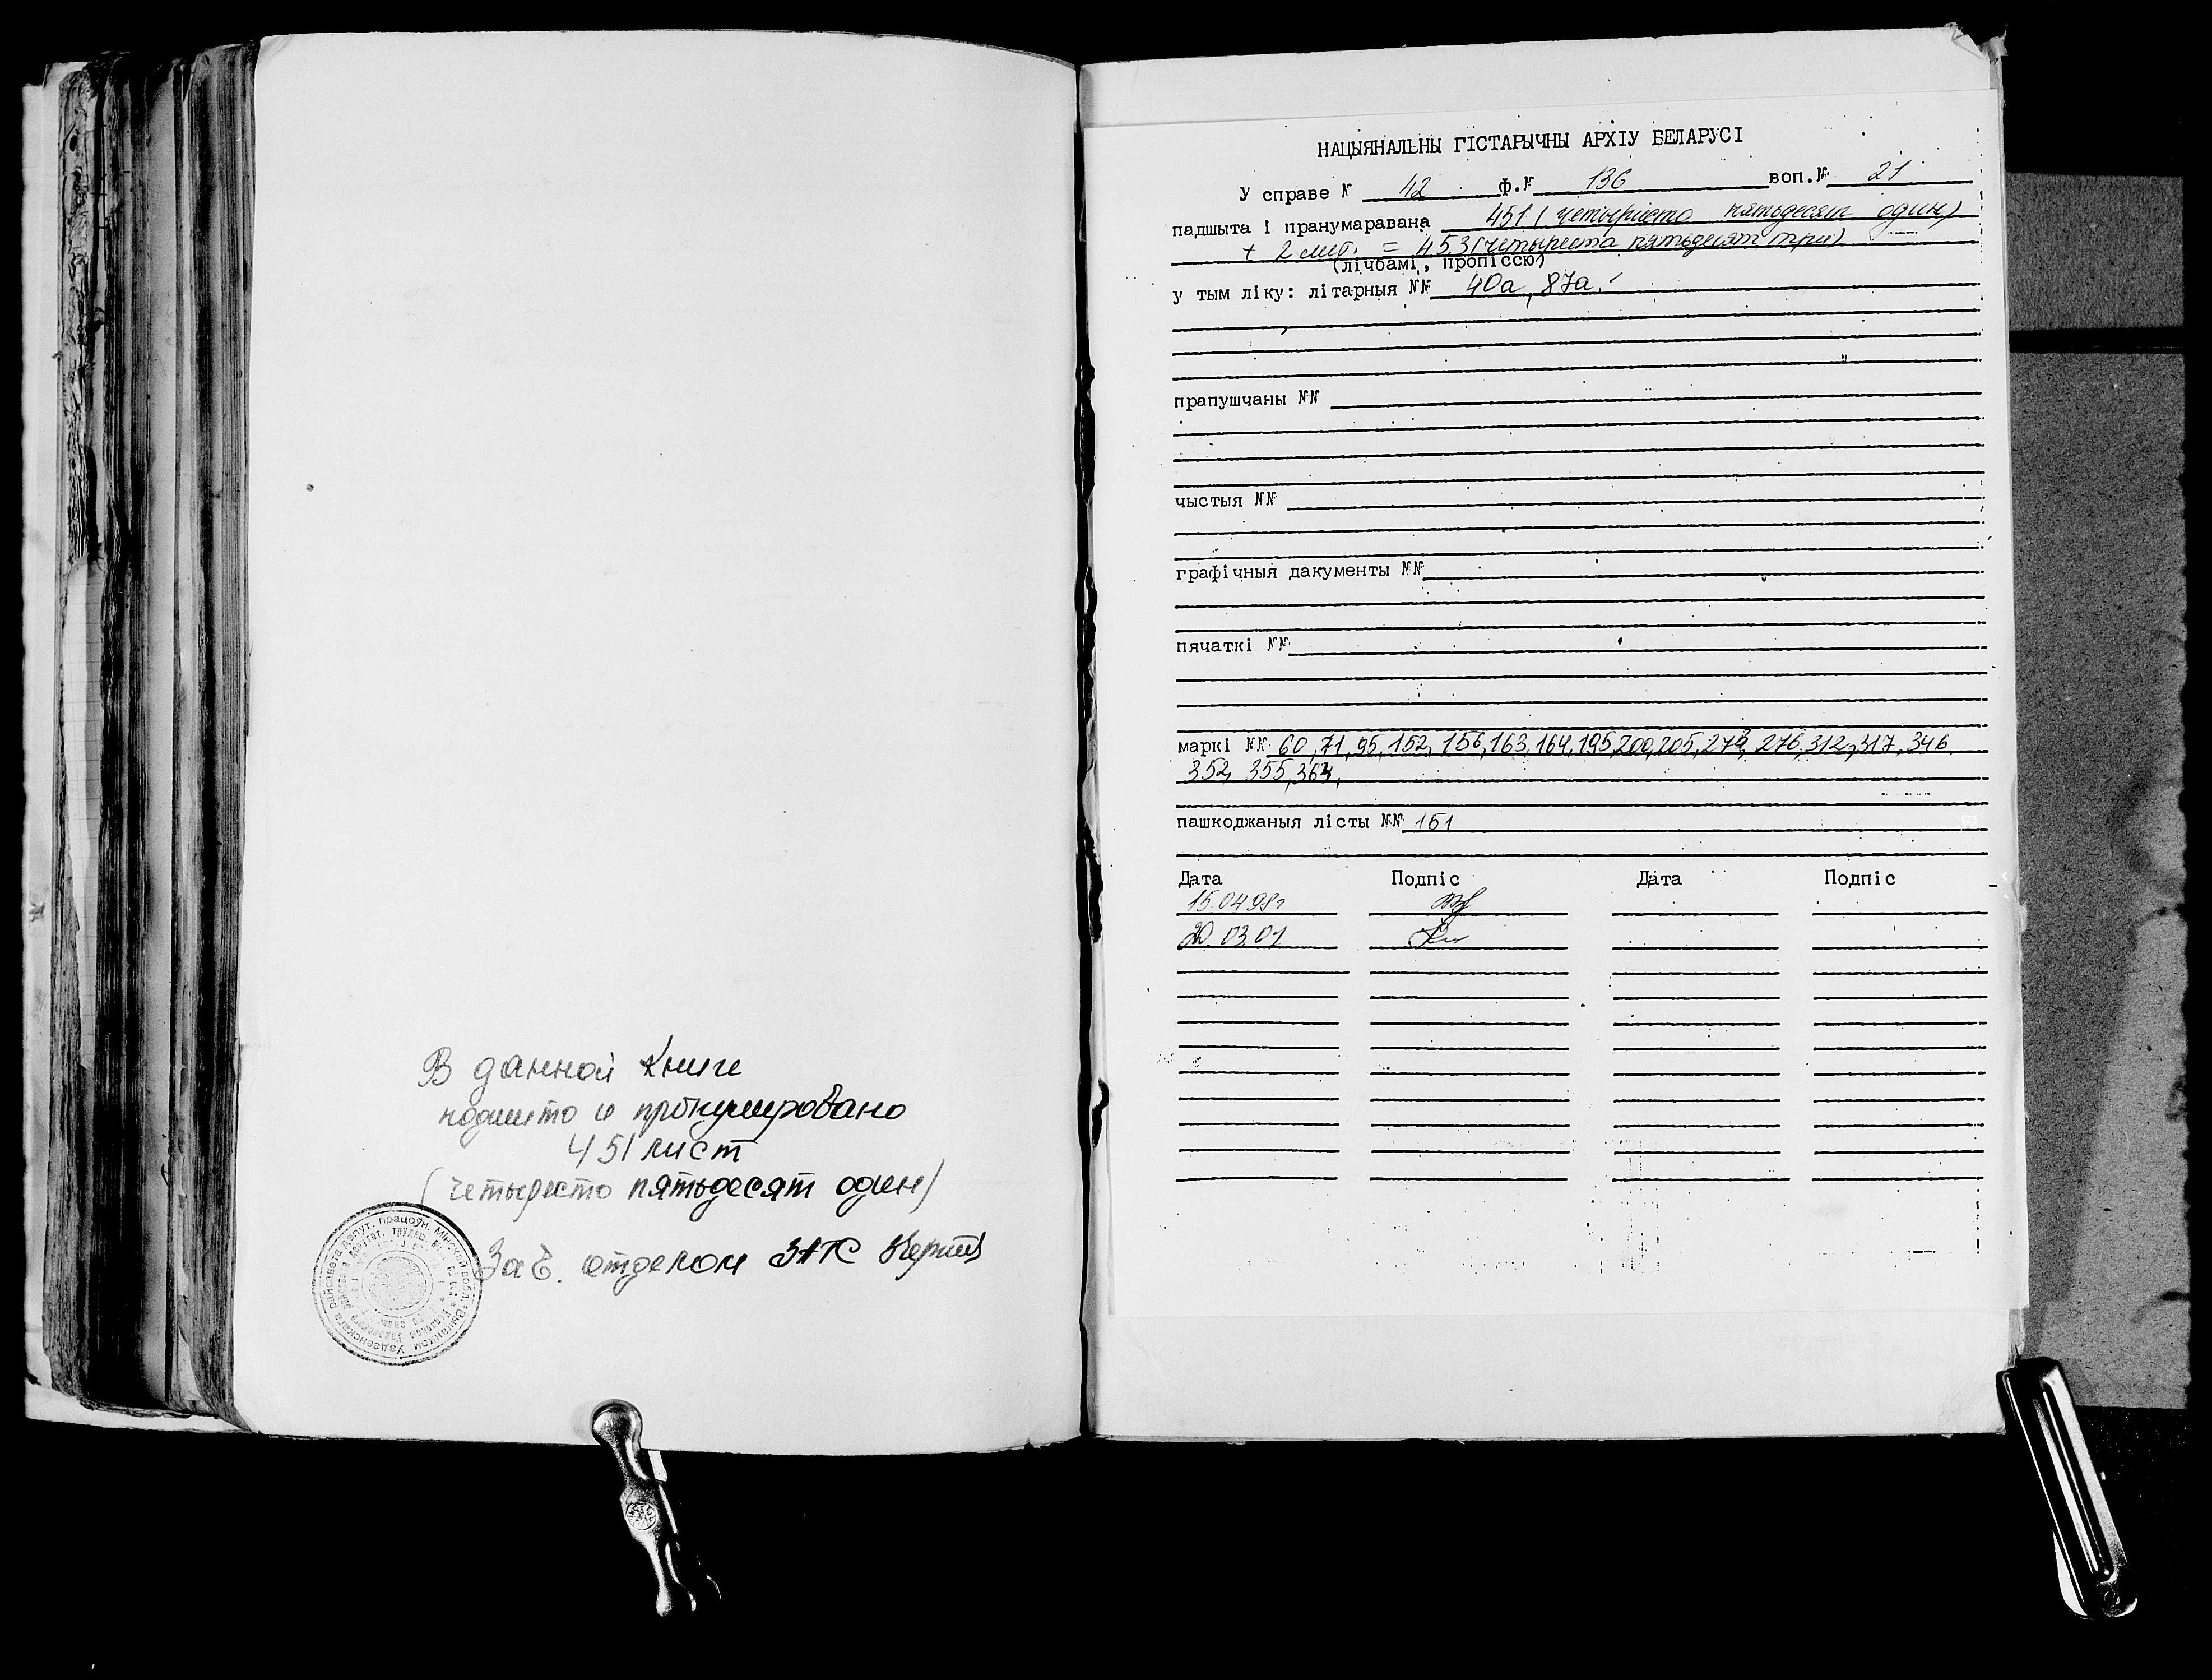 В данной книге
подшито и пронумеровано
451 лист
(четыресто пятьдесят один)
Зав. отделом ЗАГС
НАЦЫЯНАЛЬНЫ ГІСТАРЫЧНЫ АРХІУ БЕЛАРУСІ
У справе № 42 ф.№ 136 воп.№ 21
падшыта і пранумаравана 451 (четыресто пятьдесят один)
+ 2 лит. = 453 (четыреста пятьдесят три)
(лічбамі, пропіссю)
у тым ліку: літарныя №№ 40а, 87а.
прапушчаны №№
чыстыя №№
графічныя дакументы №№
пячаткі №№
маркі №№ 60, 71, 95, 152, 156, 163, 164, 195, 200, 205, 276, 312, 317, 346,
352, 355,
пашкоджаныя лісты №№ 151
Дата Подпіс Дата Подпіс
15.04.98г
20.03.01